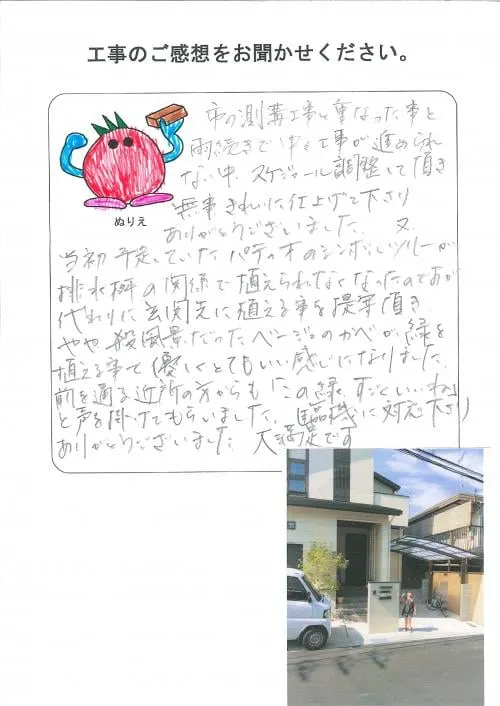 工事のご感想をお聞かせください。
市の測溝工事と重なった事と
雨続きで中々工事が進められ
ない中、スケジュール調整して頂き
無事きれいに仕上げて下さり
ありがとうございました。又
ぬりえ
当初予定していたパティオのシンボルツリーが
排水桝の関係で植えられなくなったのですが
代わりに玄関先に植える事を提案頂き
やや殺風景だったベージュのかべが、緑を
植える事で優しくとてもいい感じになりました。
前を通る近所の方からも「この緑、すごくいいね」
と声を掛けてもらいました。臨機に対応下さり
ありがとうございました 大満足です